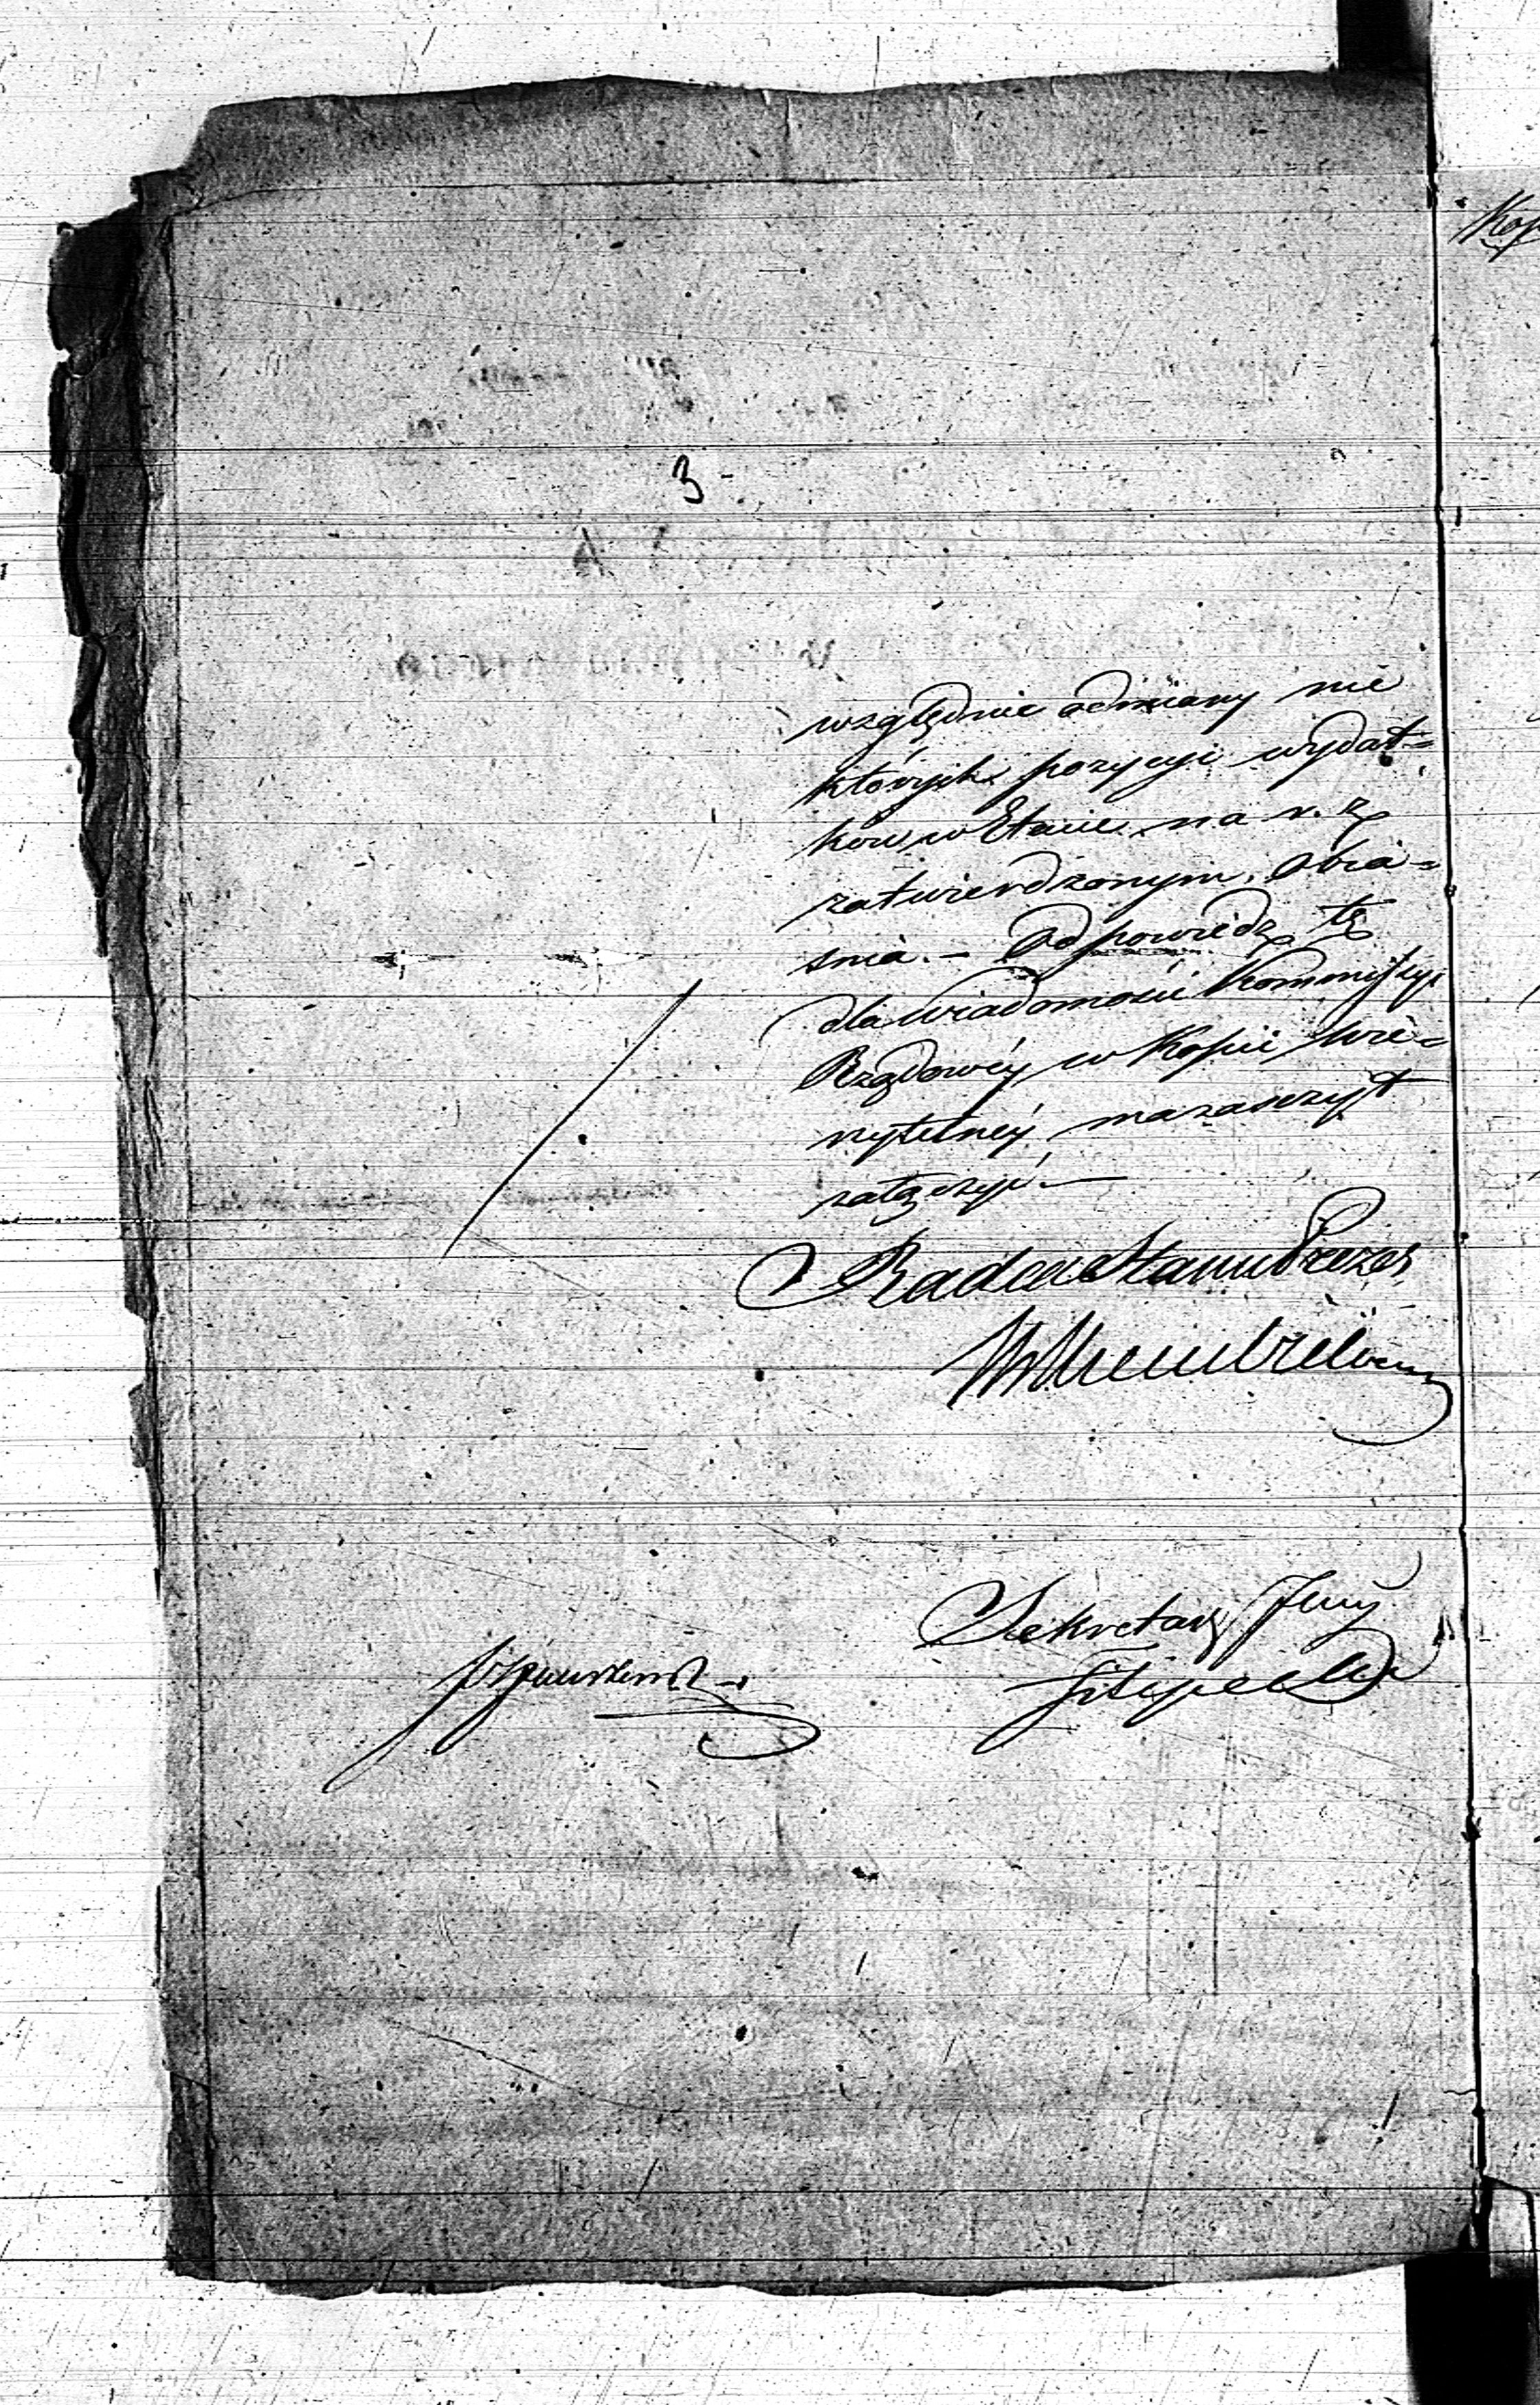 3
względnie odmiany nie
których pozycyi wydat=
ków w Etacie na r. z
zatwierdzonym, obia=
snia. — Odpowiedz tę
dla wiadomości Kommissyi
Rządowéy w Kopii wie=
rzytelnéy ma zaszczyt
załączyć. —
Radca Stanu Prezes
Sekretarz Jlny
Filipecki